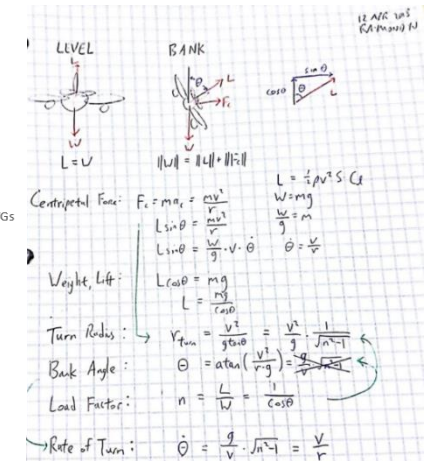 12 APR 2013
RAIMONDI N
LEVEL
BANK
L
θ
L
Fc
sin θ
cosθ
θ
L
W
W
L = W
||W|| = ||L|| + ||Fc||
L = ½ρv²S Cl
Centripetal Force: Fc = mac = mv²/r
W = mg
Gs
L sinθ = mv²/r
W/g = m
L sinθ = W/g · v · θ̇
θ̇ = v/r
Weight, Lift: L cosθ = mg
L = mg/cosθ
Turn Radius: r turn = v²/(g tanθ) = v²/g · 1/√(n²-1)
Bank Angle: θ = atan(v²/(r·g)) = g/v √(n²-1)
Load Factor: n = L/W = 1/cosθ
Rate of Turn: θ̇ = g/v · √(n²-1) = v/r